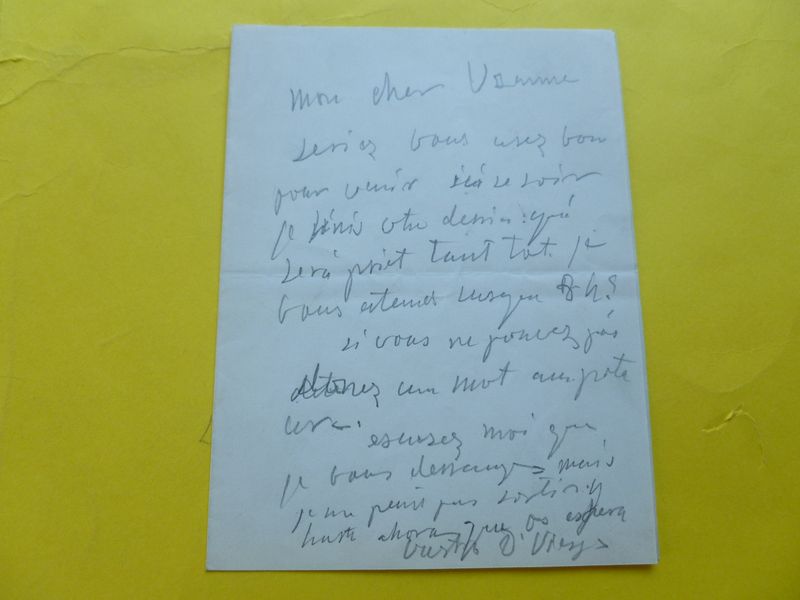 mon cher Uzanne
seriez vous asez bon
pour venir ici se soir
je finis votre dessin qui
sera pret tanttot. je
vous atend jusqua 8 h.
si vous ne pouvez pas
un mot
escusez moi que
je vous derrange mais
je ne peus pas sortir. y
hasta ahora que os espera
D. Vierge